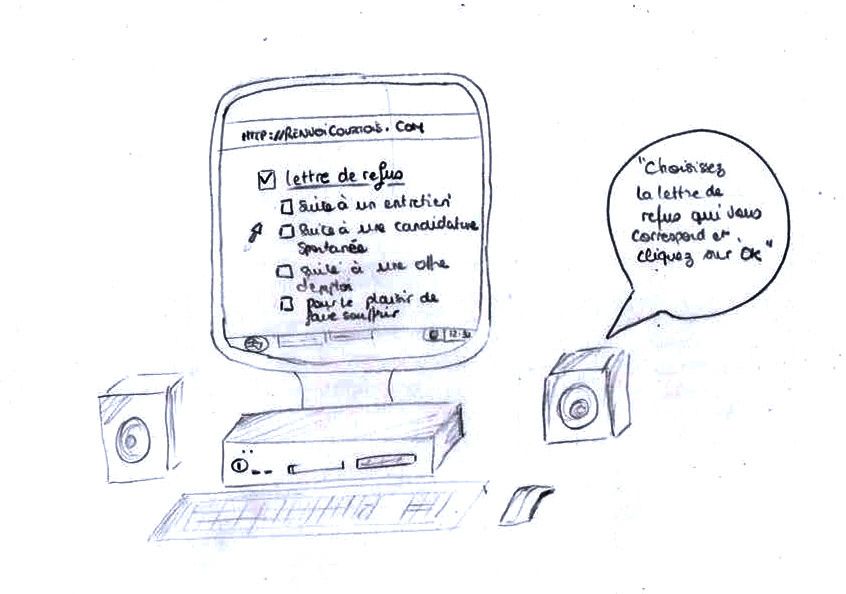 HTTP://RENVOICOURTOIS.COM
lettre de refus
suite à un entretien
suite à une candidature
spontanée
suite à une offre
d'emploi
pour le plaisir de
faire souffrir
12:30
"Choisissez
la lettre de
refus qui vous
correspond et
cliquez sur "OK"